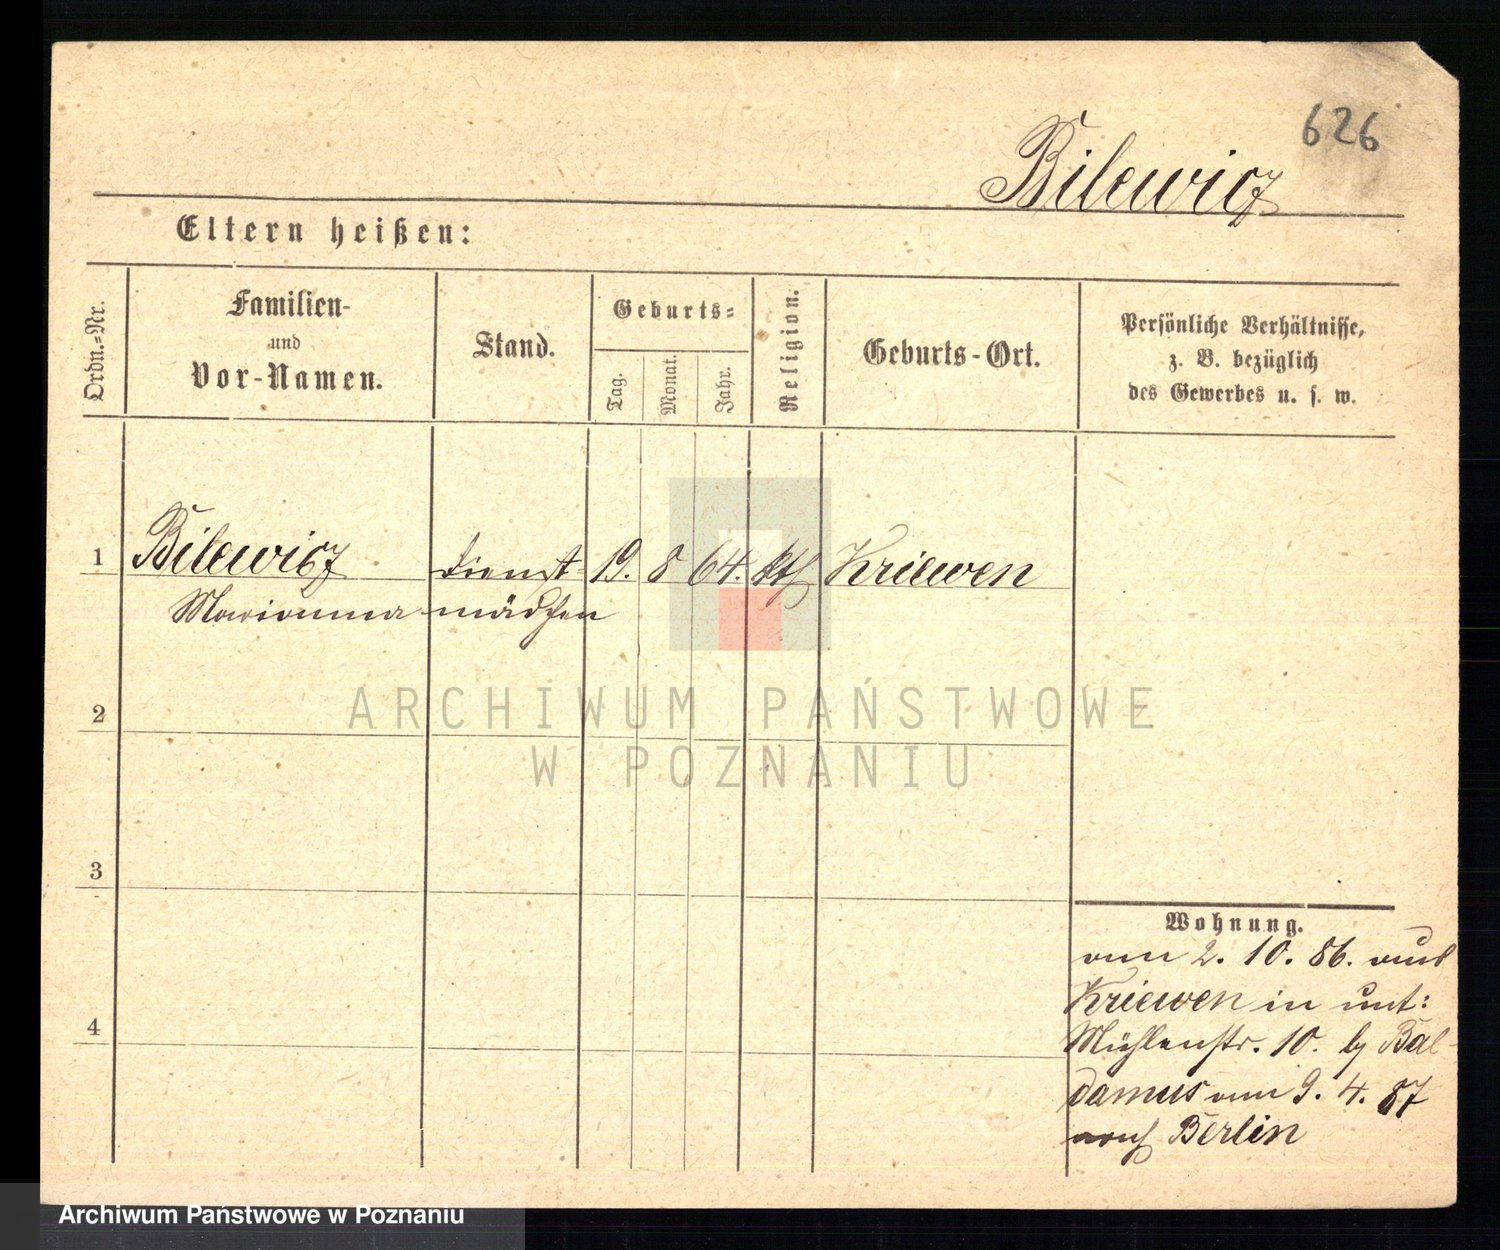 626
Bilewicz
Eltern heißen:
Ordn.-Nr.
Familien-
und
Vor-Namen.
Stand.
Geburts-
Tag.
Monat.
Jahr.
Religion.
Geburts-Ort.
Persönliche Verhältnisse,
z. B. bezüglich
des Gewerbes u. s. w.
1 Bilewicz Dienst- 19. 8 64. kth Kriewen
Marianna mädchen
2
ARCHIWUM PAŃSTWOWE
W POZNANIU
3
Wohnung.
am 2. 10. 86. aus
Kriewen in unt:
4
Mühlenstr. 10. by Bal-
damus am 9. 4. 87
nach Berlin
Archiwum Państwowe w Poznaniu